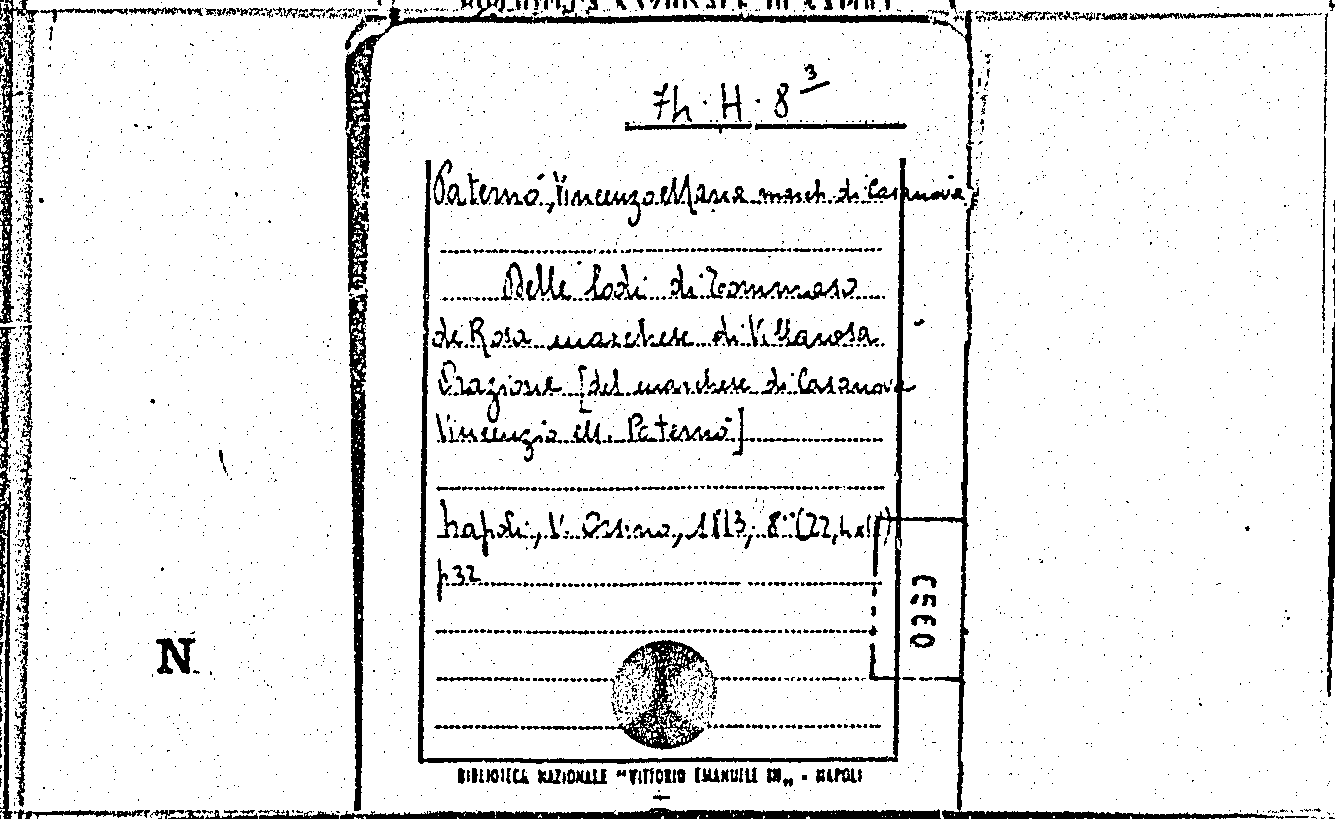 7h. H. 8 3
Paternò, Vincenzo Maria march. di Casanova
Delle lodi di Tommaso
de Rosa marchese di Villarosa
Orazione [del marchese di Casanova
Vincenzio M. Paternò]
Napoli, V. Orsino, 1813, 8°
p. 32
0353
N
BIBLIOTECA NAZIONALE "VITTORIO EMANUELE III„ - NAPOLI